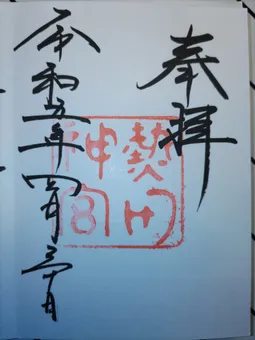 奉拝
熱田
神宮
令和五年四月三十日